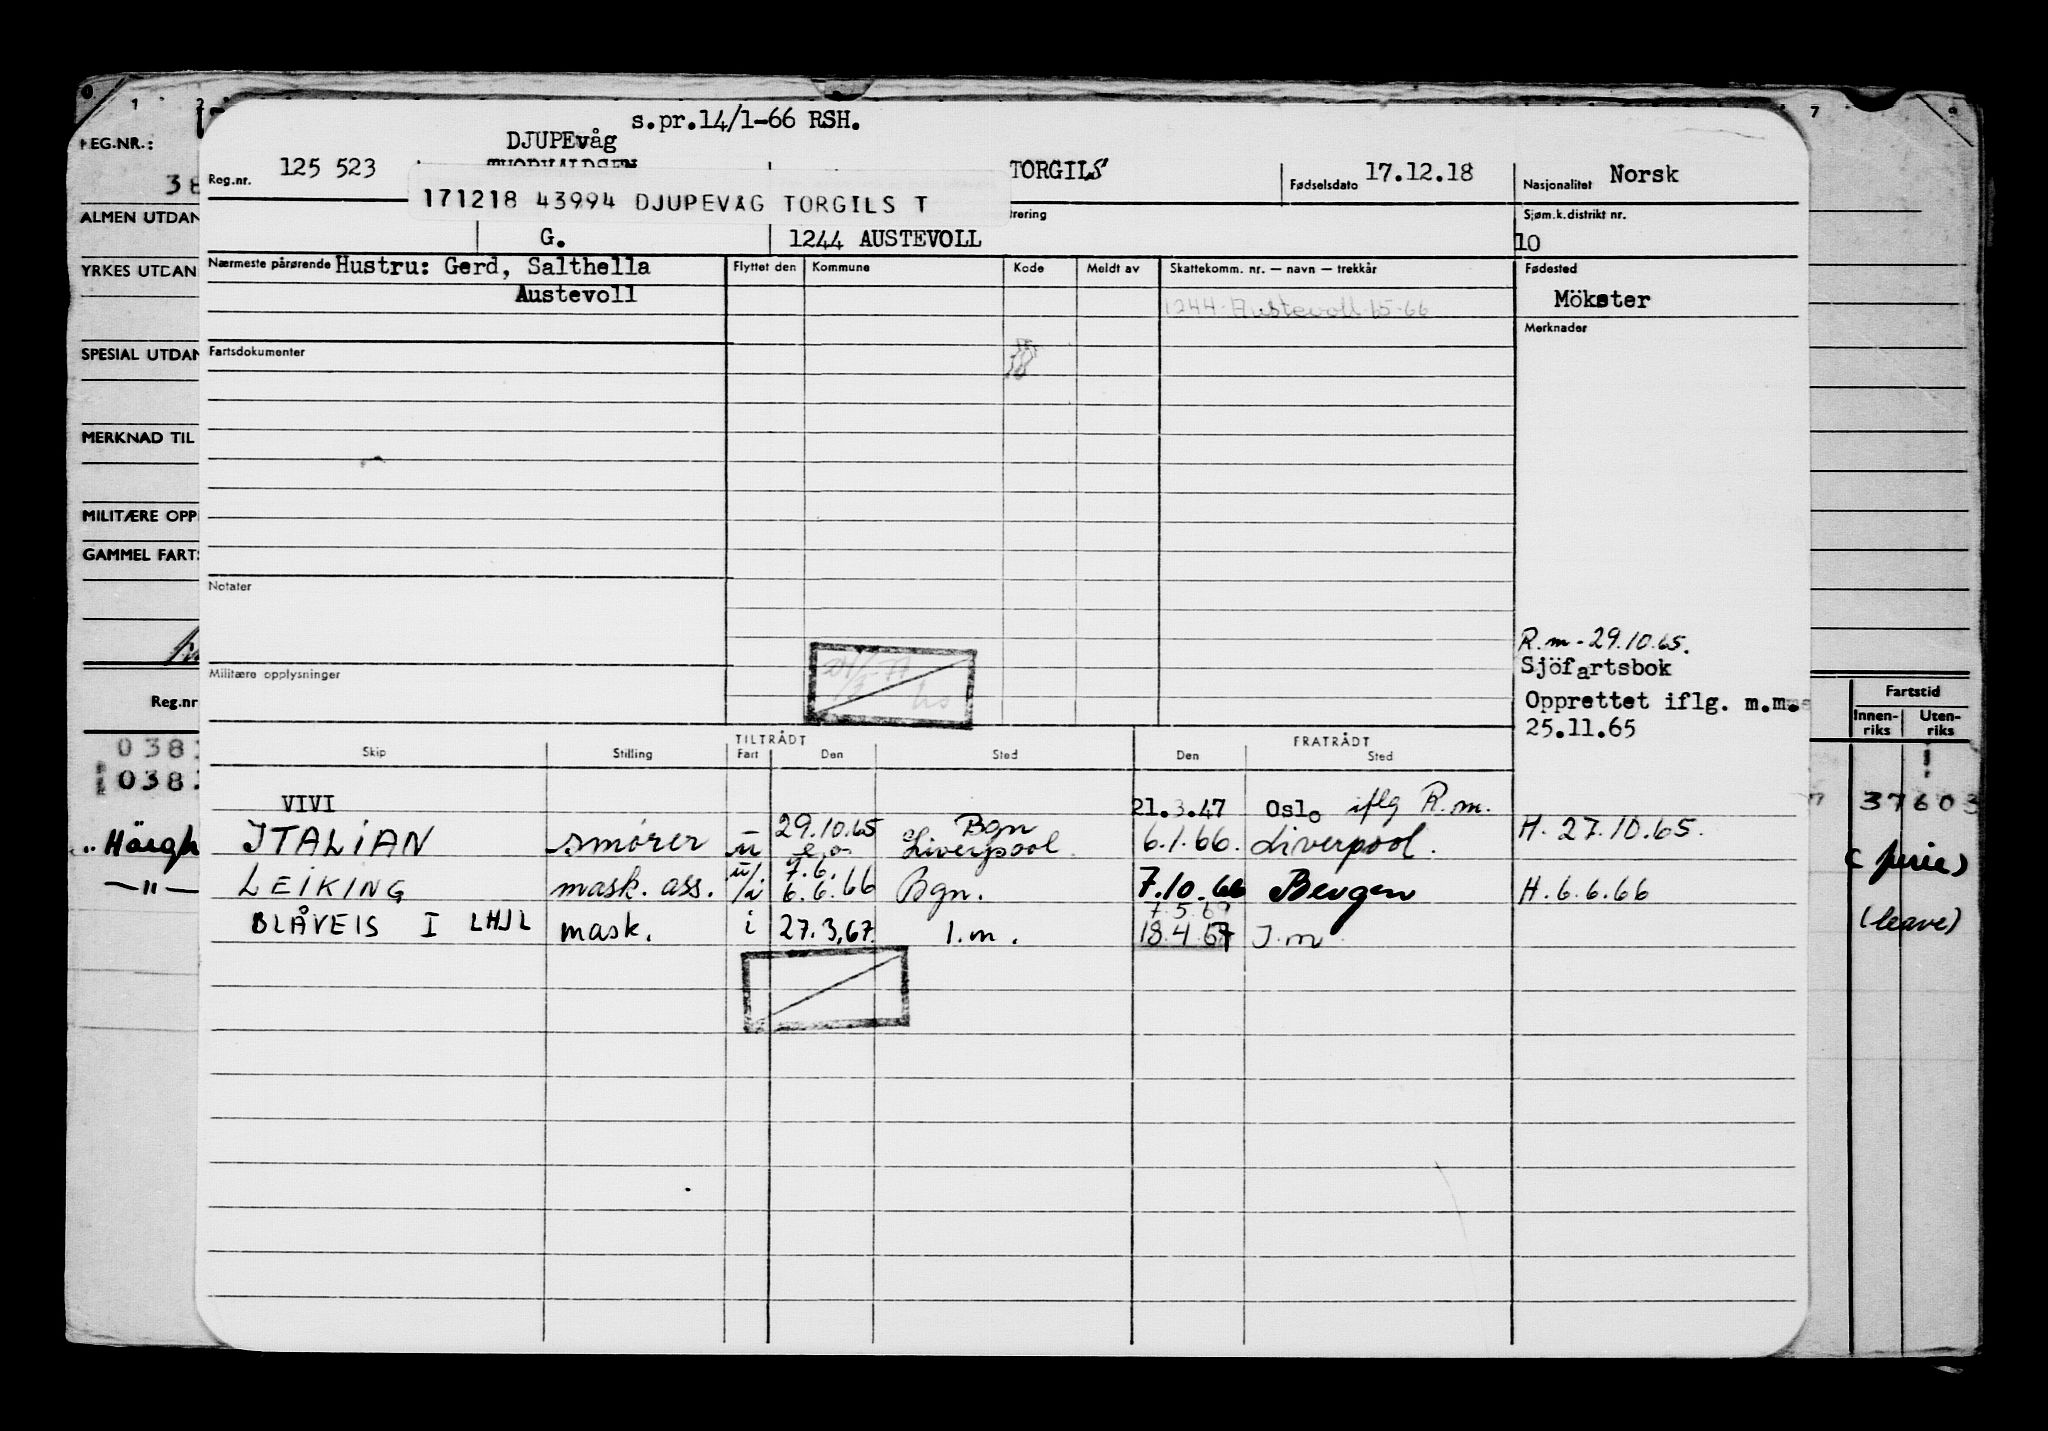 s.pr.14/1-66 RSH.
DJUPEvåg
Reg.nr. 125 523 THORVALDSEN TORGILS Fødselsdato 17.12.18 Nasjonalitet Norsk
171218 43994 DJUPEVÅG TORGILS T
Sjøm.k.distrikt nr.
G. 1244 AUSTEVOLL 10
Nærmeste pårørende Hustru: Gerd, Salthella Flyttet den Kommune Kode Meldt av Skattekomm. nr. — navn — trekkår Fødested
Austevoll Mökster
1244 Austevoll 15-66
Merknader
Fartsdokumenter
Notater
R.m - 29.10.65.
Sjöfartsbok
Militære opplysninger
Opprettet iflg. m.m.
25.11.65
TILTRÅDT FRATRÅDT
Skip Stilling Fart Den Sted Den Sted
VIVI 21.3.47 Oslo iflg R.m.
29.10.65 Bgn
ITALIAN smører u Liverpool 6.1.66. Liverpool. H. 27.10.65.
7.6.
LEIKING mask. ass. u/i 6.6.66 Bgn. 7.10.66 Bergen H. 6.6.66
7.5.67
BLÅVEIS I LHJL mask. i 27.3.67 I.m. 18.4.67 I.m
REG.NR.:
38
ALMEN UTDAN
YRKES UTDAN
SPESIAL UTDAN
MERKNAD TIL
MILITÆRE OPP
GAMMEL FARTS
Reg.nr
038
038
— " —
1 2 7
Fartstid
Innen-riks Uten-riks
37603
(ferie)
(leave)